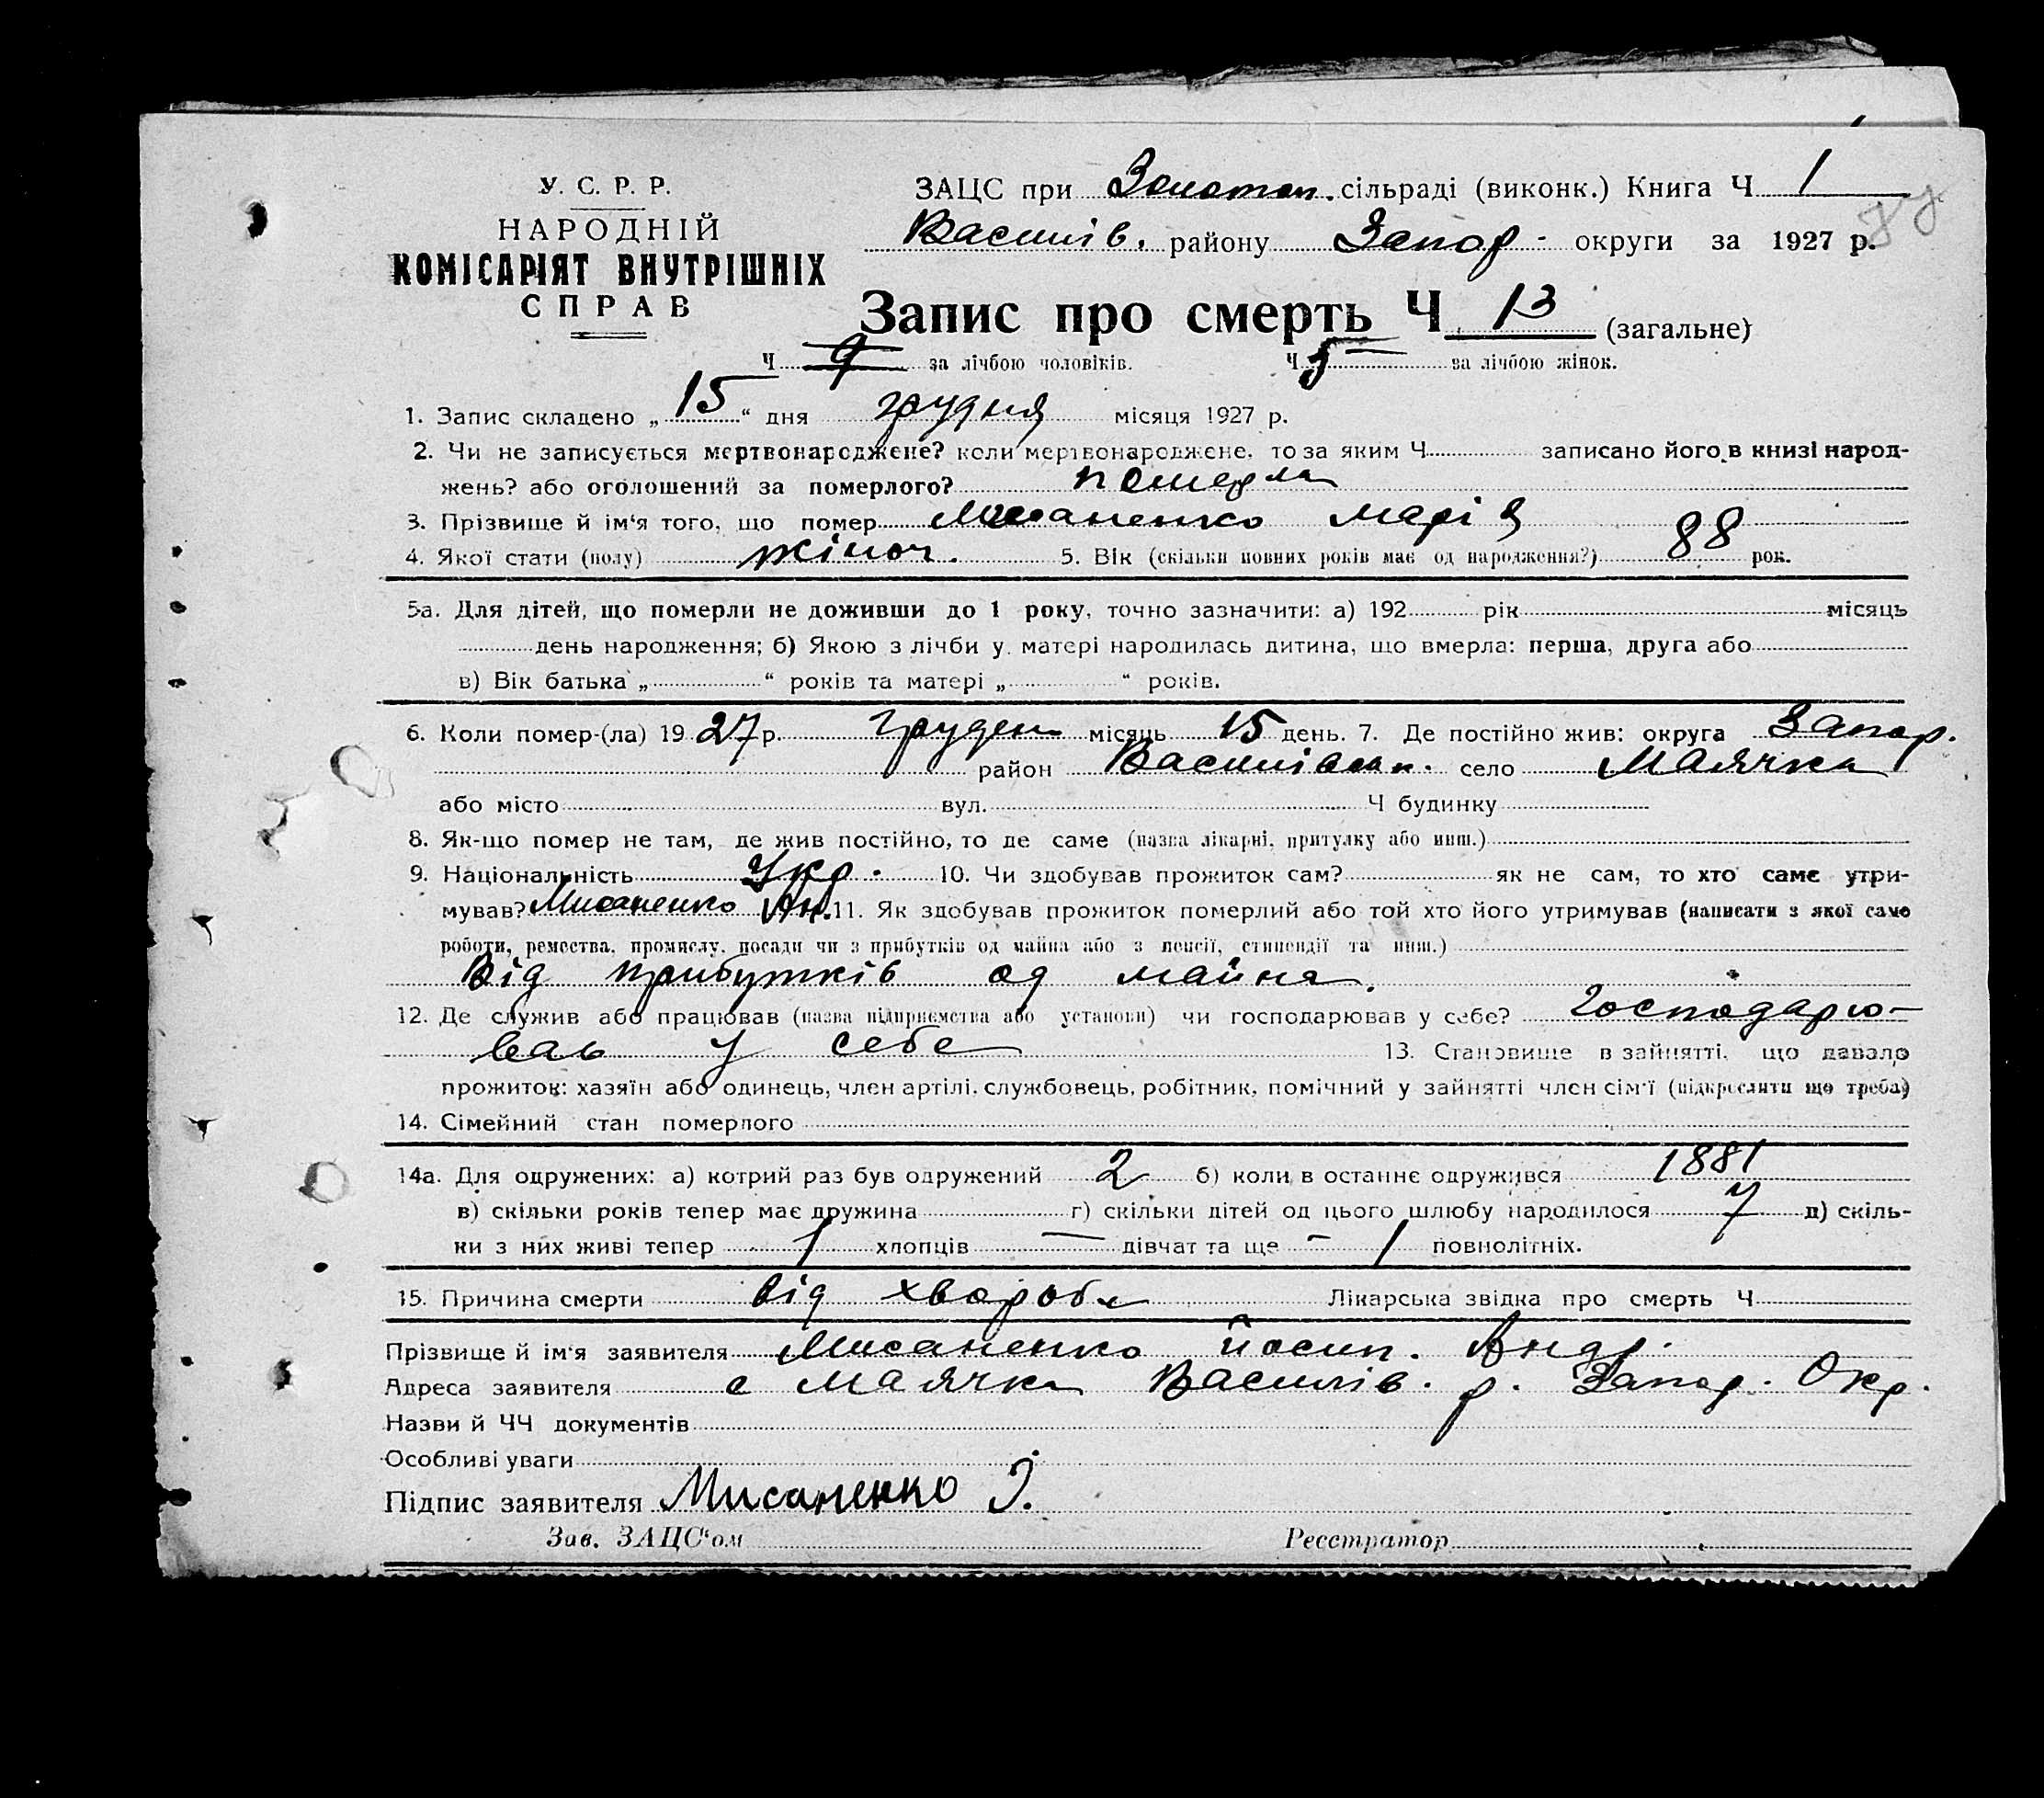 У. С. Р. Р.
НАРОДНІЙ
КОМІСАРІЯТ ВНУТРІШНІХ
СПРАВ
ЗАЦС при сільраді (виконк.) Книга Ч 1
Василів. району Запор. округи за 1927 р.
Запис про смерть Ч 13 (загальне)
Ч 9 за лічбою чоловіків. Ч 5 за лічбою жінок.
1. Запис складено „ 15 “ дня грудня місяця 1927 р.
2. Чи не записується мертвонароджене? коли мертвонароджене, то за яким Ч записано його в книзі народ-
жень? або оголошений за померлого? померла
3. Прізвище й ім‘я того, що помер Мисаненко Марія
4. Якої стати (полу) жіноч. 5. Вік (скільки повних років має од народження?) 88 рок.
5а. Для дітей, що померли не доживши до 1 року, точно зазначити: а) 192 рік місяць
день народження; б) Якою з лічби у матері народилась дитина, що вмерла: перша, друга або
в) Вік батька „ “ років та матері „ “ років.
6. Коли помер-(ла) 19 27 р. грудень місяць 15 день. 7. Де постійно жив: округа Запор.
район Василівськ. село Маячка
або місто вул. Ч будинку
8. Як-що помер не там, де жив постійно, то де саме (назва лікарні, притулку або инш.)
9. Національність Укр. 10. Чи здобував прожиток сам? як не сам, то хто саме утри-
мував? Мисаненко Ан. 11. Як здобував прожиток померлий або той хто його утримував (написати з якої саме
роботи, ремества, промислу, посади чи з прибутків од майна або з пенсії, стипендії та инш.)
Від прибутків од майна.
12. Де служив або працював (назва підприємства або установи) чи господарював у себе? Господарю-
вав у себе 13. Становище в зайнятті, що давало
прожиток: хазяїн або одинець, член артілі, службовець, робітник, помічний у зайнятті член сім‘ї (підкреслити що треба)
14. Сімейний стан померлого
14а. Для одружених: а) котрий раз був одружений 2 б) коли в останнє одружився 1881
в) скільки років тепер має дружина г) скільки дітей од цього шлюбу народилося 7 д) скіль-
ки з них живі тепер 1 хлопців — дівчат та ще - 1 повнолітніх.
15. Причина смерти від хвороби Лікарська звідка про смерть Ч
Прізвище й ім‘я заявителя Мисаненко Йосип. Андр.
Адреса заявителя с Маячка Василів. р. Запор. Окр.
Назви й ЧЧ документів
Особливі уваги
Підпис заявителя Мисаненко Й.
Зав. ЗАЦС“ом Реєстратор